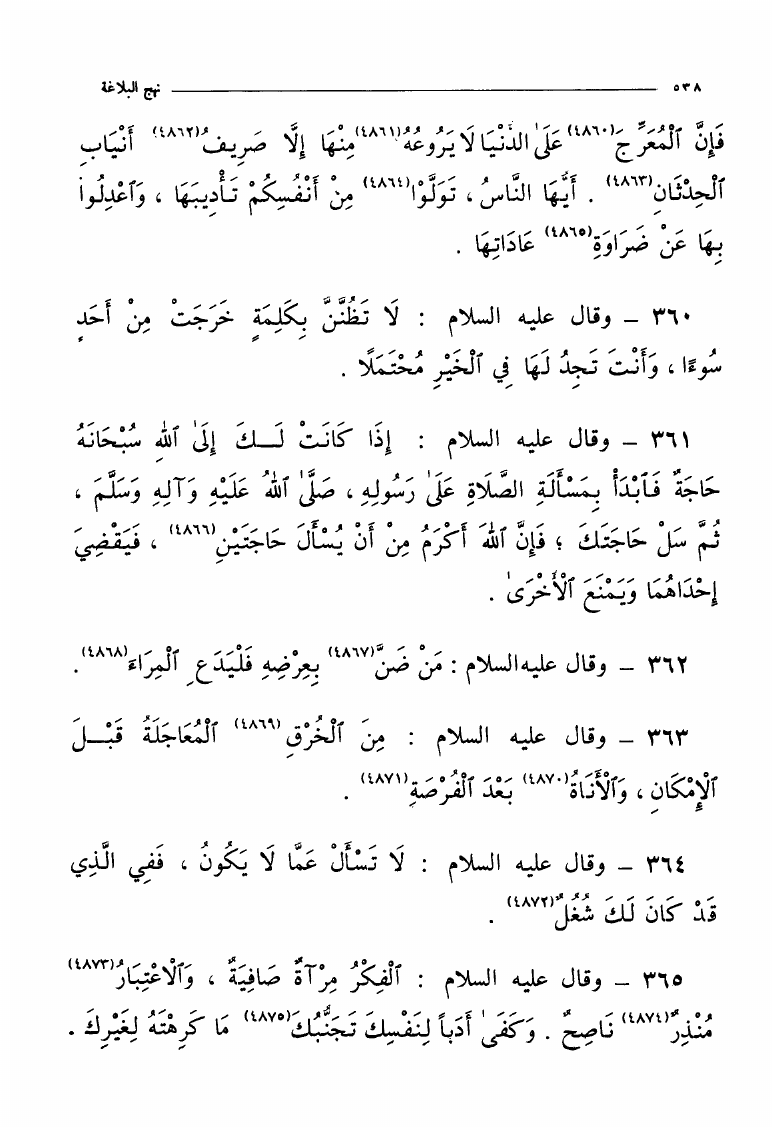 ٥٣٨ نهج البلاغة
فَإِنَّ ٱلْمُعَرِّجَ(٤٨٦٠) عَلَىٰ الدُّنْيَا لَا يَرُوعُهُ(٤٨٦١) مِنْهَا إِلَّا صَرِيفُ(٤٨٦٢) أَنْيَابِ
ٱلْحِدْثَانِ(٤٨٦٣) . أَيُّهَا النَّاسُ ، تَوَلَّوْا(٤٨٦٤) مِنْ أَنْفُسِكُمْ تَأْدِيبَهَا ، وَٱعْدِلُوا
بِهَا عَنْ ضَرَاوَةِ(٤٨٦٥) عَادَاتِهَا .
٣٦٠ – وقال عليه السلام : لَا تَظُنَّنَّ بِكَلِمَةٍ خَرَجَتْ مِنْ أَحَدٍ
سُوءًا ، وَأَنْتَ تَجِدُ لَهَا فِي ٱلْخَيْرِ مُحْتَمَلًا .
٣٦١ – وقال عليه السلام : إِذَا كَانَتْ لَكَ إِلَىٰ ٱللهِ سُبْحَانَهُ
حَاجَةٌ فَٱبْدَأْ بِمَسْأَلَةِ الصَّلَاةِ عَلَىٰ رَسُولِهِ ، صَلَّىٰ ٱللهُ عَلَيْهِ وَآلِهِ وَسَلَّمَ ،
ثُمَّ سَلْ حَاجَتَكَ ؛ فَإِنَّ ٱللهَ أَكْرَمُ مِنْ أَنْ يُسْأَلَ حَاجَتَيْنِ(٤٨٦٦) ، فَيَقْضِيَ
إِحْدَاهُمَا وَيَمْنَعَ ٱلْأُخْرَىٰ .
٣٦٢ – وقال عليه السلام : مَنْ ضَنَّ(٤٨٦٧) بِعِرْضِهِ فَلْيَدَعِ ٱلْمِرَاءَ(٤٨٦٨) .
٣٦٣ – وقال عليه السلام : مِنَ ٱلْخُرْقِ(٤٨٦٩) ٱلْمُعَاجَلَةُ قَبْلَ
ٱلْإِمْكَانِ ، وَٱلْأَنَاةُ(٤٨٧٠) بَعْدَ ٱلْفُرْصَةِ(٤٨٧١) .
٣٦٤ – وقال عليه السلام : لَا تَسْأَلْ عَمَّا لَا يَكُونُ ، فَفِي الَّذِي
قَدْ كَانَ لَكَ شُغُلٌ(٤٨٧٢) .
٣٦٥ – وقال عليه السلام : ٱلْفِكْرُ مِرْآةٌ صَافِيَةٌ ، وَٱلْاعْتِبَارُ(٤٨٧٣)
مُنْذِرٌ(٤٨٧٤) نَاصِحٌ . وَكَفَىٰ أَدَباً لِنَفْسِكَ تَجَنُّبُكَ(٤٨٧٥) مَا كَرِهْتَهُ لِغَيْرِكَ .